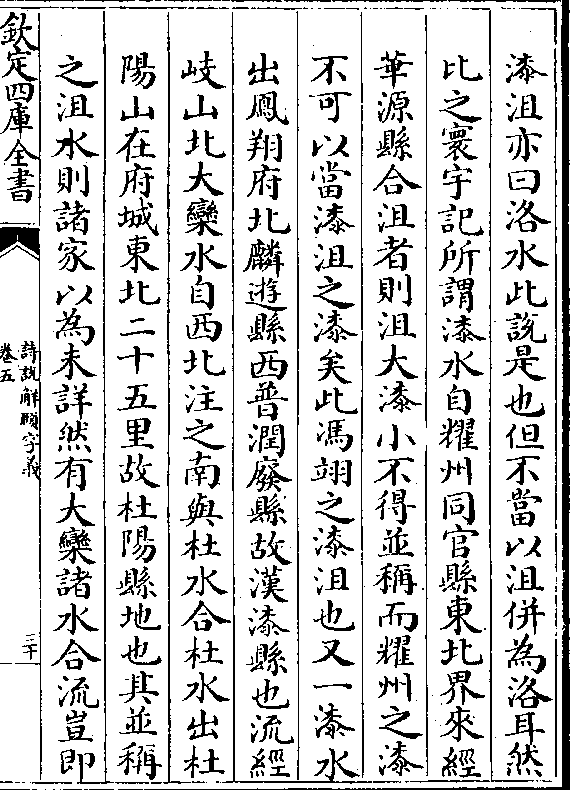 漆沮亦曰洛水此説是也但不當以沮併為洛耳然
比之寰宇記所謂漆水自耀州同官縣東北界來經
華源縣合沮者則沮大漆小不得並稱而耀州之漆
不可以當漆沮之漆矣此馮翊之漆沮也又一漆水
出鳳翔府北麟遊縣西普潤廢縣故漢漆縣也流經
岐山北大欒水自西北注之南與杜水合杜水出杜
陽山在府城東北二十五里故杜陽縣地也其並稱
之沮水則諸家以為未詳然有大欒諸水合流豈即
欽定四庫全書
詩説解頤字義
卷五
三十